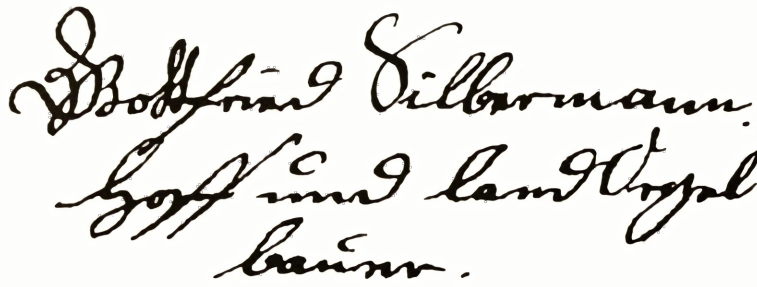 Gottfried Silbermann.
Hoff und land Orgel
bauer.